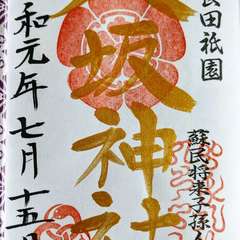 田祇園
蘇民将来子孫
八坂神社
和元年七月十五日